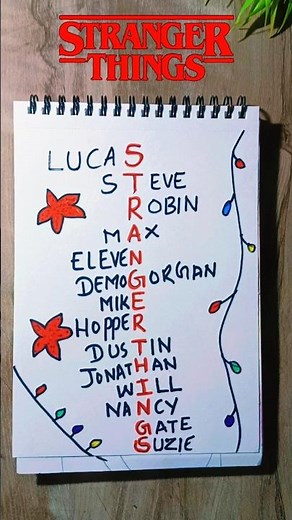 STRANGER
THINGS
LUCAS
STEVE
ROBIN
MAX
ELEVEN
DEMOGORGIAN
MIKE
HOPPER
DUSTIN
JONATHAN
WILL
NANCY
GATE
SUZIE